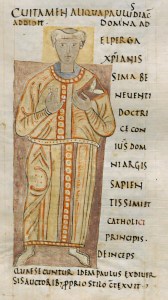 CUITAMEN ALIQUA PAULUS DIAC
ADDIDIT DOMNA AD
ELPERGA
XPIANIS
SIMA BE
NEUENTI
DOCTRI
CE CON
IUS DOM
NI ARGIS
SAPIEN
TISSIMI ET
CATHOLICI
PRINCIPIS.
DEINCEPS
IDEM PAULUS EXDIUER
SIS AUCTORIB; PPRIO STILO